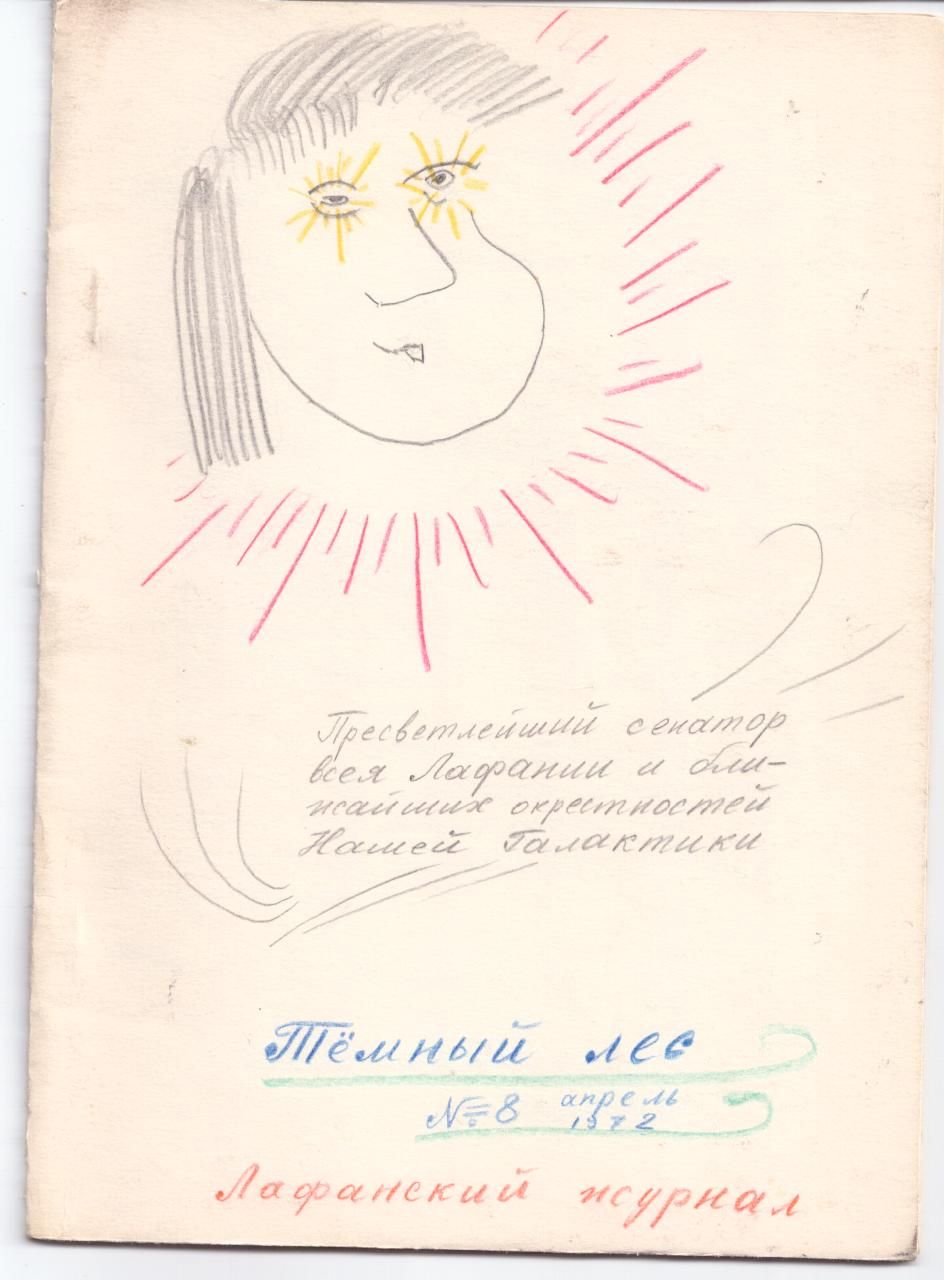 Пресветлейший сенатор
всея Лафании и бли-
жайших окрестностей
Нашей Галактики
Тёмный лес
№ 8 апрель
1972
Лафанский журнал